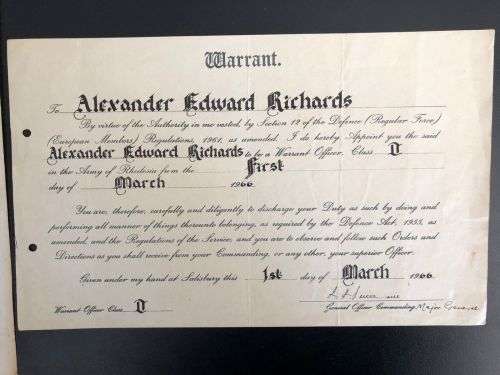 Warrant.
To Alexander Edward Richards
By virtue of the Authority in me vested, by Section 12 of the Defence (Regular Force)
(European Members) Regulations, 1961, as amended. I do hereby Appoint you the said
Alexander Edward Richards to be a Warrant Officer, Class II
in the Army of Rhodesia from the First
day of March 1966
You are, therefore, carefully and diligently to discharge your Duty as such by doing and
performing all manner of things thereunto belonging, as required by the Defence Act, 1955, as
amended, and the Regulations of the Service; and you are to observe and follow such Orders and
Directions as you shall receive from your Commanding, or any other, your superior Officer.
Given under my hand at Salisbury this 1st day of March 1966
Warrant Officer Class II
General Officer Commanding Major General